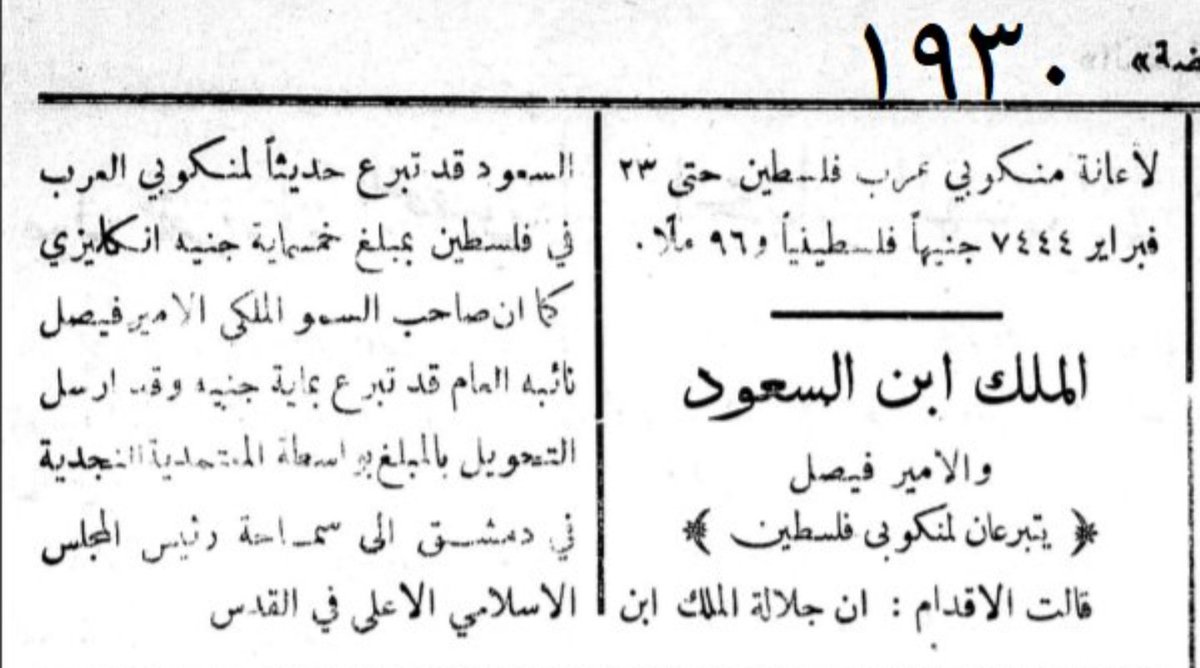 ١٩٣٠
ضة»
لأعانة منكوبي عرب فلسطين حتى ٢٣
فبراير ٧٤٤٤ جنيهاً فلسطينياً و٩٦ ملاً.
الملك ابن السعود
والامير فيصل
﴿ يتبرعان لمنكوبي فلسطين ﴾
قالت الاقدام : ان جلالة الملك ابن
السعود قد تبرع حديثاً لمنكوبي العرب
في فلسطين بمبلغ خمسماية جنيه انكليزي
كما ان صاحب السمو الملكي الامير فيصل
نائبه العام قد تبرع بماية جنيه وقد ارسل
التحويل بالمبلغ بواسطة المعتمدية النجدية
في دمشق الى سماحة رئيس المجلس
الاسلامي الاعلى في القدس